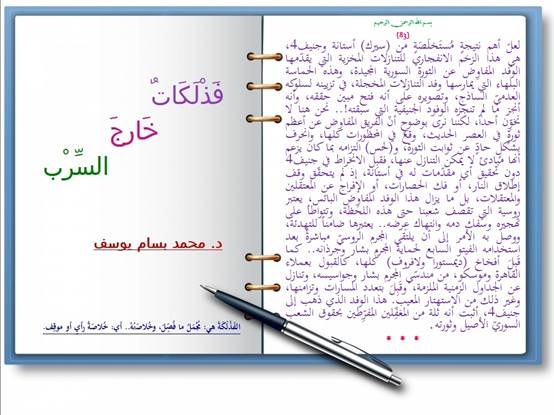 بسم الله الرحمن الرحيم
(83)
لعلّ أهم نتيجةٍ مُستَخلَصَةٍ من (سيرك) أستانة وجنيف4،
هي هذا الزخم الانفجاريّ للتنازلات المخزية التي يقدّمها
الوفد المفاوض عن الثورة السورية المجيدة، وهذه الحماسة
البلهاء التي يمارسها وفد التنازلات المخجلة، في تزيينه لسلوكه
العدميّ الساذج، وتصويره على أنه فتح مبين حققه، وأنه
أنجز ما لم تنجزه الوفود الجنيفية التي سبقته!.. نحن هنا لا
نخوّن أحداً، لكننا نرى بوضوحٍ أنّ الفريق المفاوض عن أعظم
ثورة في العصر الحديث، وقع في المحظورات كلها، وانحرف
بشكلٍ حادٍ عن ثوابت الثورة، و(لحس) التزامه بما كان يزعم
أنها مبادئ لا يمكن التنازل عنها، فقبل الانخراط في جنيف4
دون تحقيق أي مقدّمات له في أستانة، إذ لم يتحقق وقف
إطلاق النار، أو فك الحصارات، أو الإفراج عن المعتقلين
والمعتقلات، بل ما يزال هذا الوفد المفاوض البائس، يعتبر
روسية التي تقصف شعبنا حتى هذه اللحظة، وتتواطأ على
تهجيره وسفك دمه وانتهاك عرضه.. يعتبرها ضامناً للتهدئة،
ووصل به الأمر إلى أن يلتقي المجرم الروسيّ مباشرةً بعد
استخدامه الفيتو السابع لحماية المجرم بشار وجرذانه.. كما
قبل أفخاخ (ديمستورا ولافروف) كلها، كالقبول بعملاء
القاهرة وموسكو، من مندسّي المجرم بشار وجواسيسه، وتنازل
عن الجداول الزمنية الملزمة، وقَبِلَ بتعدد المسارات وتزامنها،
وغير ذلك من الاستهتار المعيب. هذا الوفد الذي ذهب إلى
جنيف4، أثبت أنه ثلة من المغفّلين المفرّطين بحقوق الشعب
السوريّ الأصيل وثورته.
• • •
فَذْلَكَاتٌ
خَارِجَ
السِّرْبِ
د. محمد بسام يوسف
الفَذْلَكَةُ هي: مُجْمَلُ ما فُصِّلَ، وخُلاصَتُهُ.. أي: خُلاصَةُ رأيٍ أو موقِفٍ.